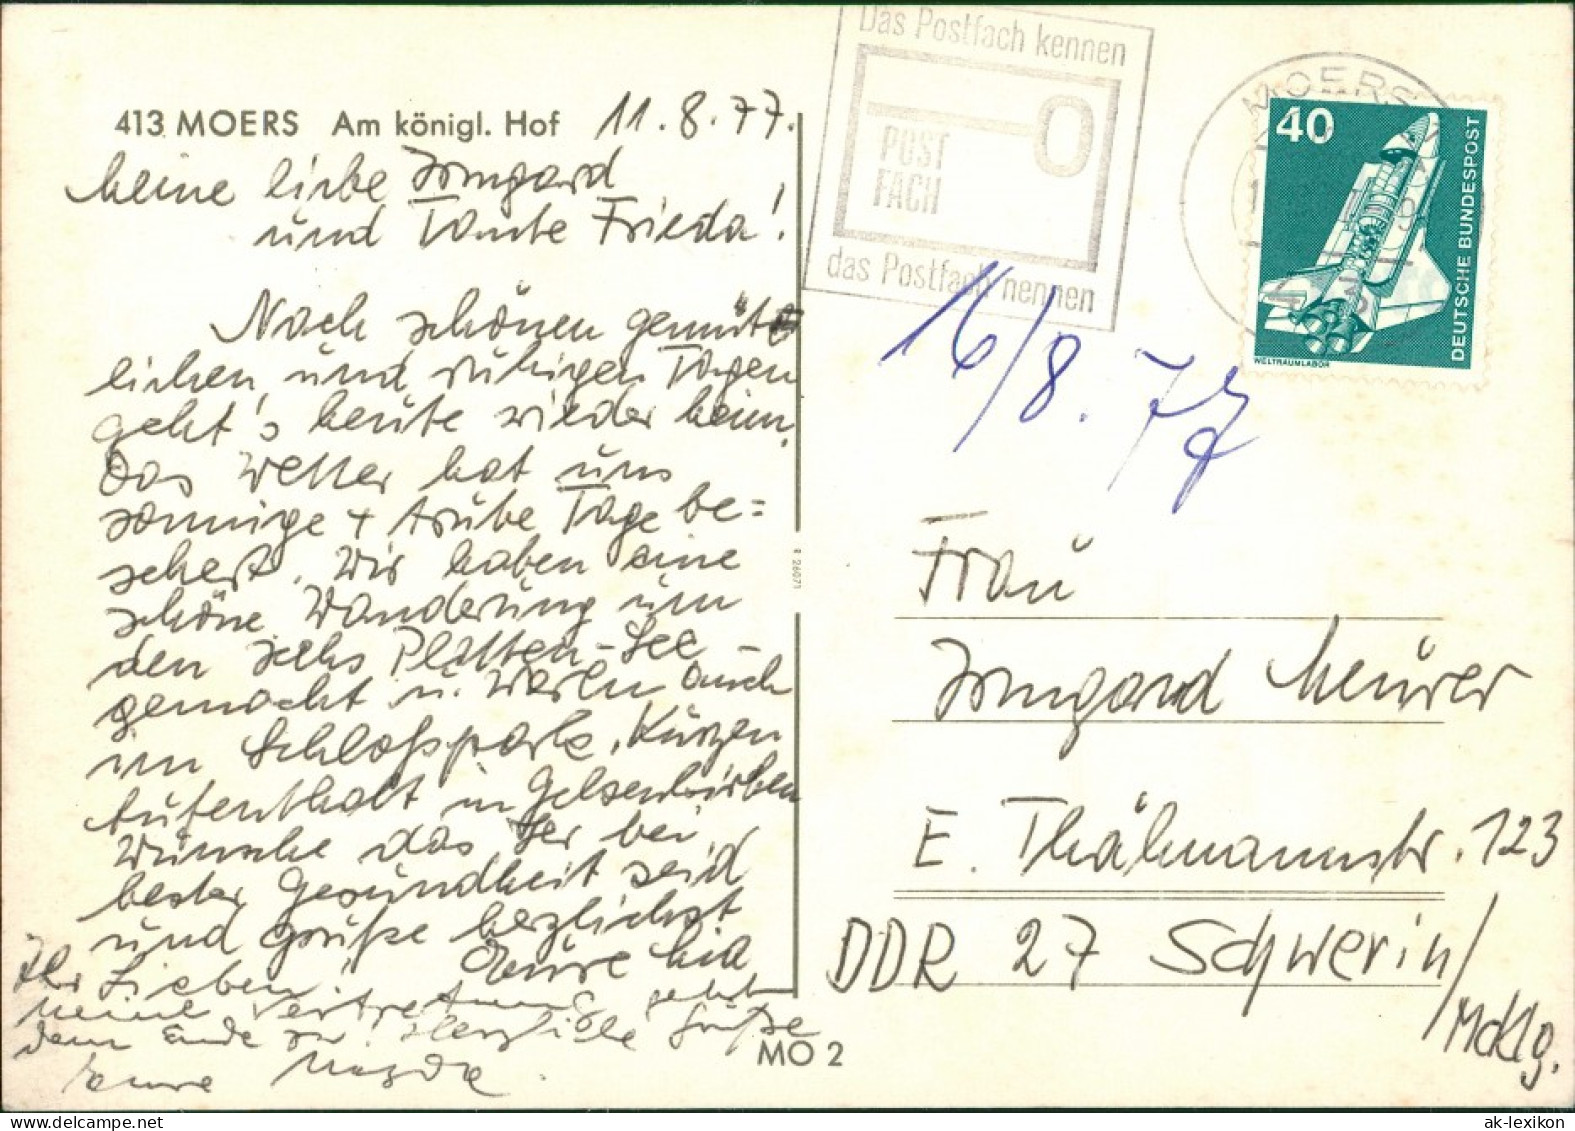 413 MOERS Am königl. Hof 11.8.77.
Meine liebe Irmgard
und Tante Frieda!
Nach schönen gemüt
lichen und ruhigen Tagen
geht's heute wieder heim.
Das Wetter hat uns
sonnige + trübe Tage be=
schert. Wir haben eine
schöne Wanderung um
den sechs Platten-See
gemacht u. waren auch
im Schloßpark. Kurzen
Aufenthalt in Gelsenkirchen
Wünsche das Ihr bei
bester Gesundheit seid
und Grüße herzlichst
Eure
Ihr Lieben!
Meine Vertretung geht
dem Ende zu. Herzliche Grüße
Eure Magda.
MO 2
Das Postfach kennen
POST
FACH
das Postfach nennen
MOERS
40
DEUTSCHE BUNDESPOST
WELTRAUMLABOR
16/8.77
Frau
Irmgard Meurer
E. Thälmannstr. 123
DDR 27 Schwerin/
Mcklg.
ak-lexikon